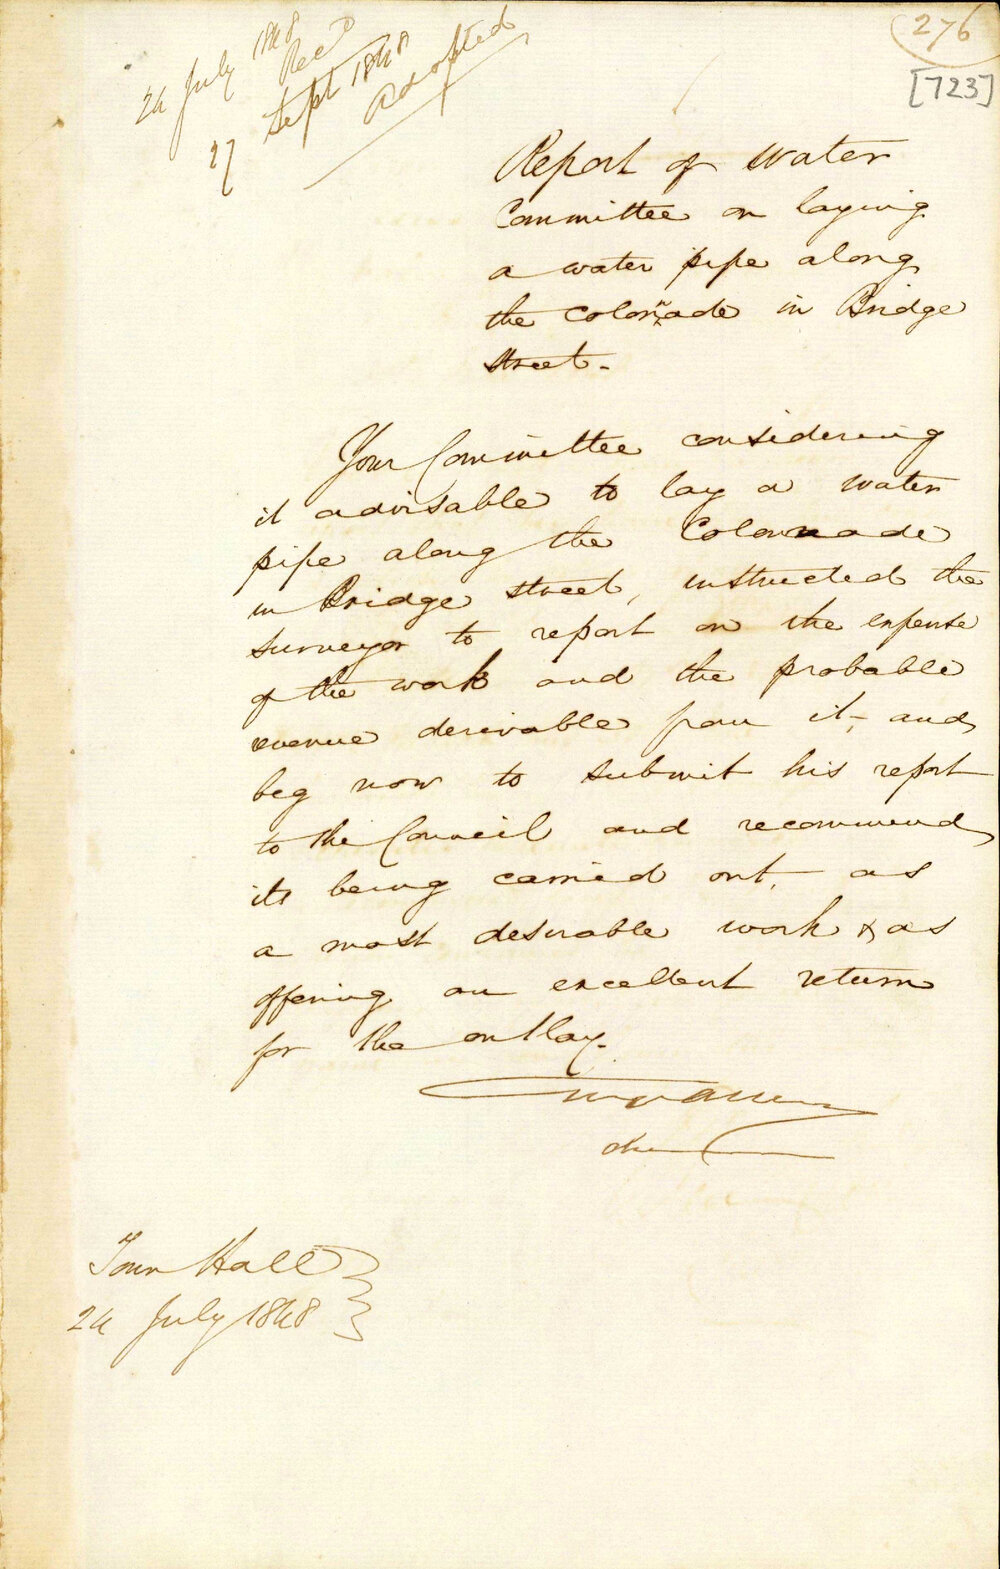 276
[723]
24 July 1848
Recd
27 Sept 1848
Adopted
Report of Water
Committee on laying
a water pipe along
the Colonnade in Bridge
Street.
Your Committee considering
it advisable to lay a water
pipe along the Colonnade
in Bridge Street, instructed the
surveyor to report on the expense
of the work and the probable
revenue derivable from it, and
beg now to submit his report
to the Council and recommend
its being carried out, as
a most desirable work & as
offering an excellent return
for the outlay.
Town Hall
24 July 1848